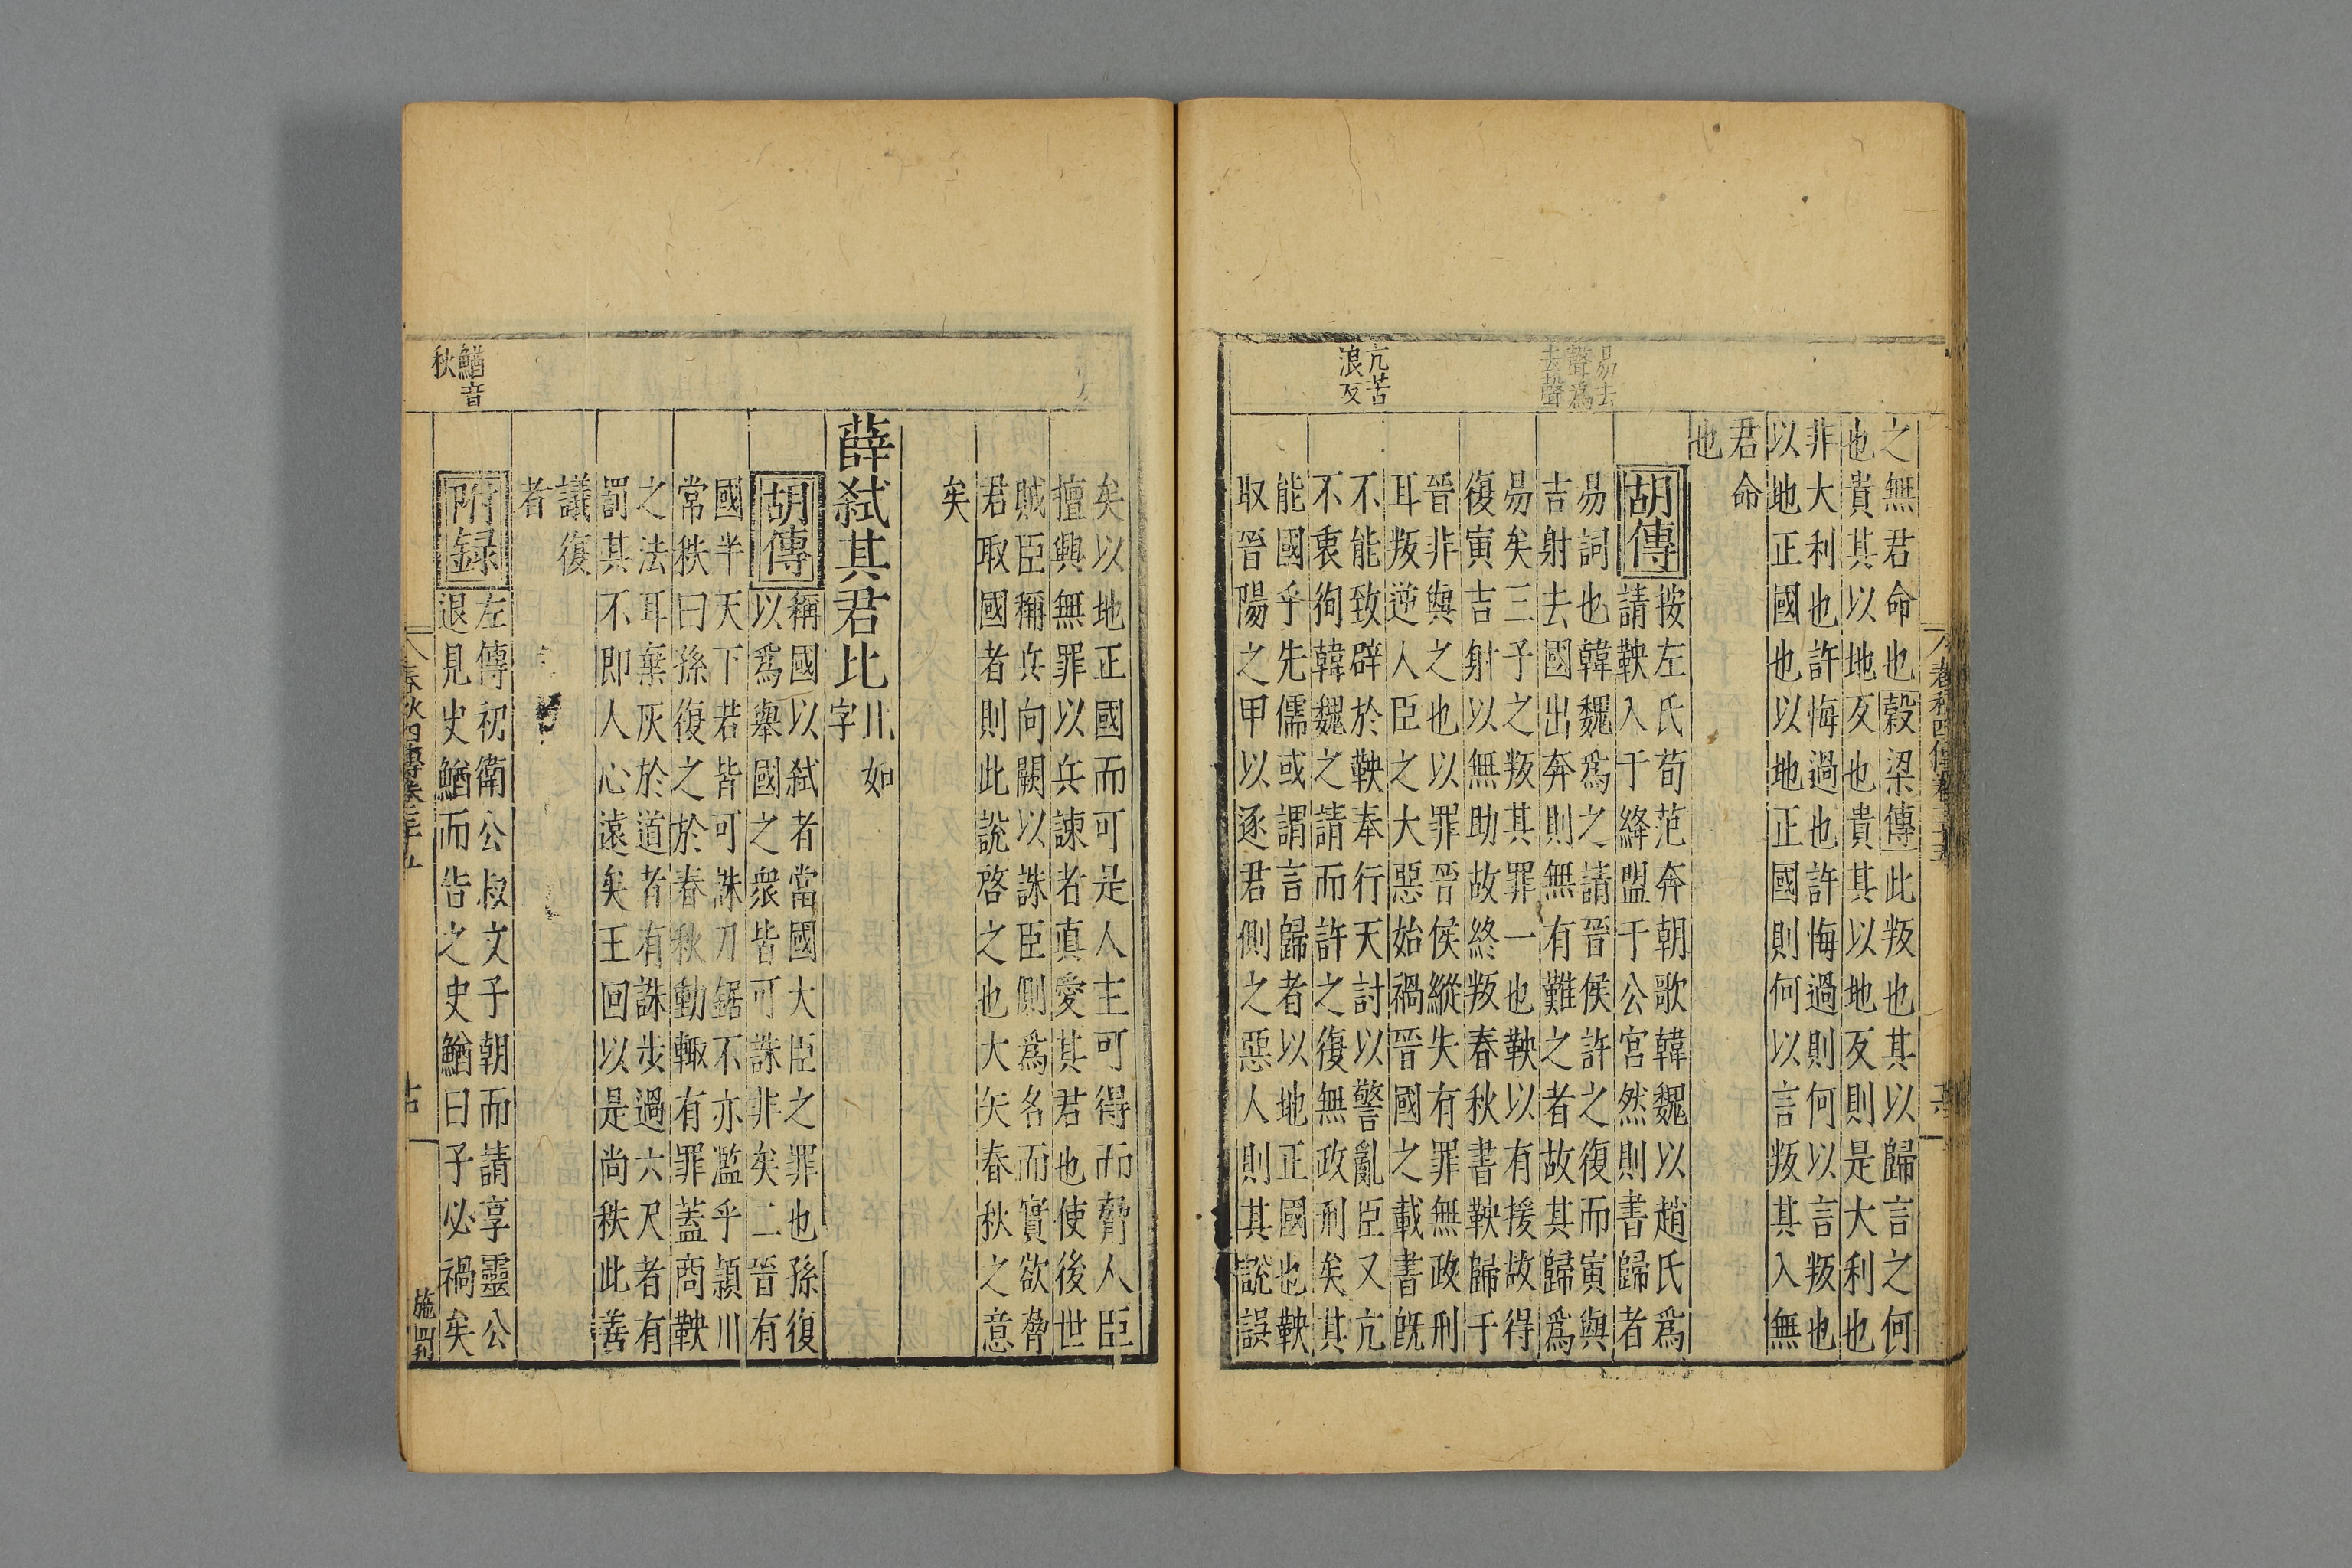 之無君命也穀梁傳此叛也其以歸言之何
也貴其以地反也貴其以地反則是大利也
非大利也許悔過也許悔過則何以言叛也
以地正國也以地正國則何以言叛其入無
君命
也
胡傳
按左氏荀范奔朝歌韓魏以趙氏爲
請鞅入于絳盟于公宮然則書歸者
易詞也韓魏爲之請晉侯許之復而寅與
吉射去國出奔則無有難之者故其歸爲
易矣三子之叛其罪一也鞅以有援故得
復寅吉射以無助故終叛春秋書鞅歸于
晉非與之也以罪晉侯縱失有罪無政刑
耳叛逆人臣之大惡始禍晉國之載書旣
不能致辟於鞅奉行天討以警亂臣又亢
不衷徇韓魏之請而許之復無政刑矣其
能國乎先儒或謂言歸者以地正國也鞅
取晉陽之甲以逐君側之惡人則其說誤
易去
聲爲
去聲
亢苦
浪反
矣以地正國而可是人主可得而脅人臣
擅興無罪以兵諫者真愛其君也使後世
賊臣稱兵向闕以誅臣側爲名而實欲脅
君取國者則此說啓之也大矢春秋之意
矣
薛弒其君比
比如
字
胡傳
稱國以弒者當國大臣之罪也孫復
以爲舉國之衆皆可誅非矣二晉有
國半天下若皆可誅刀鋸不亦濫乎潁川
常秩曰孫復之於春秋動輒有罪蓋商鞅
之法耳棄灰於道者有誅步過六尺者有
罰其不即人心遠矣王回以是尚秩此善
議復
者
附録
左傳初衛公叔文子朝而請享靈公
退見史鰌而告之史鰌曰子必禍矣
鰌音
秋
春秋四傳卷三十五
施罰